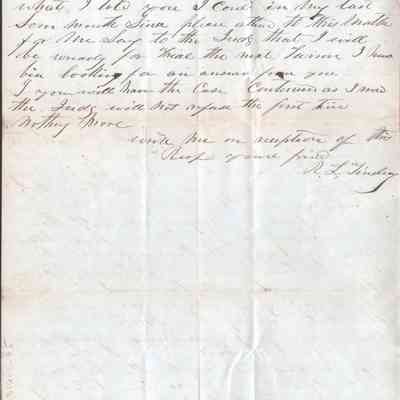 what I told you I Coud in my last
Som month Sind please attend to this Matter
for Me Say to the Judg that I will
be ready for trial the next I have
bin looking for an answer from you
I you will have the Case as I
the Judg will not refuse the first time
Nothing More
write me on reception of this
Resp yours friend